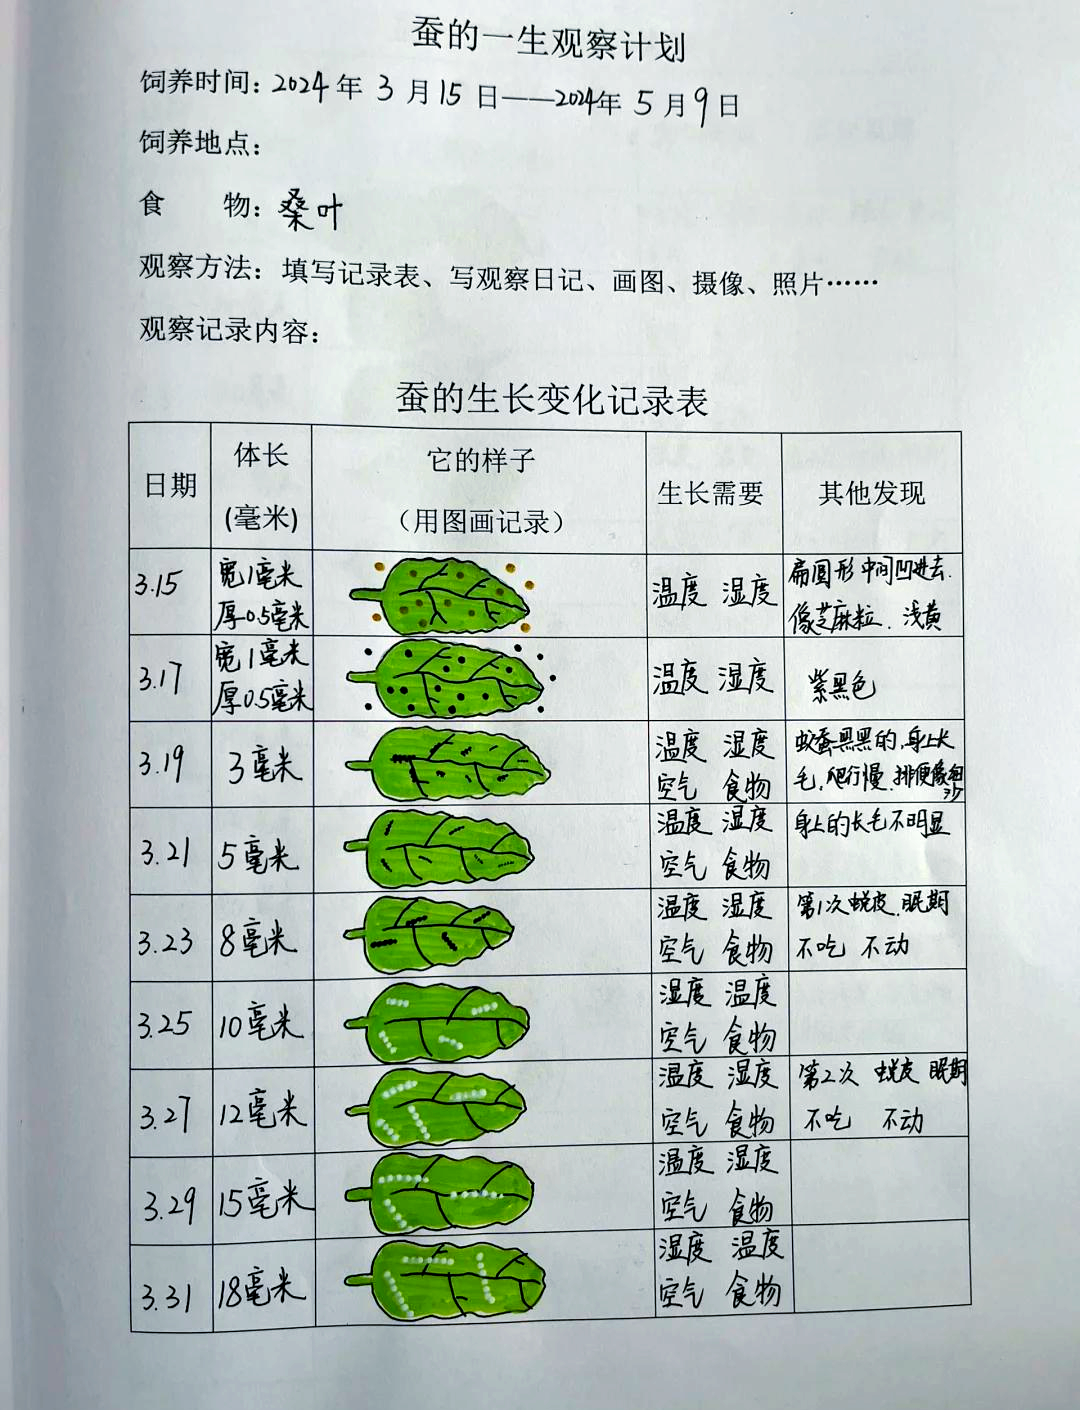 蚕的一生观察计划
饲养时间：2024年 3 月 15 日——2024年 5 月 9 日
饲养地点：
食 物：桑叶
观察方法：填写记录表、写观察日记、画图、摄像、照片……
观察记录内容：
蚕的生长变化记录表
日期
体长
(毫米)
它的样子
（用图画记录）
生长需要
其他发现
3.15
宽1毫米
厚0.5毫米
温度 湿度
扁圆形 中间凹进去.
像芝麻粒. 浅黄
3.17
宽1毫米
厚0.5毫米
温度 湿度
紫黑色
3.19
3毫米
温度 湿度
空气 食物
蚁蚕黑黑的,身上长
毛,爬行慢.排便像细
沙
3.21
5毫米
温度 湿度
空气 食物
身上的长毛不明显
3.23
8毫米
温度 湿度
空气 食物
第1次蜕皮.眠期
不吃 不动
3.25
10毫米
湿度 温度
空气 食物
3.27
12毫米
温度 湿度
空气 食物
第2次 蜕皮 眠期
不吃 不动
3.29
15毫米
温度 湿度
空气 食物
3.31
18毫米
湿度 温度
空气 食物